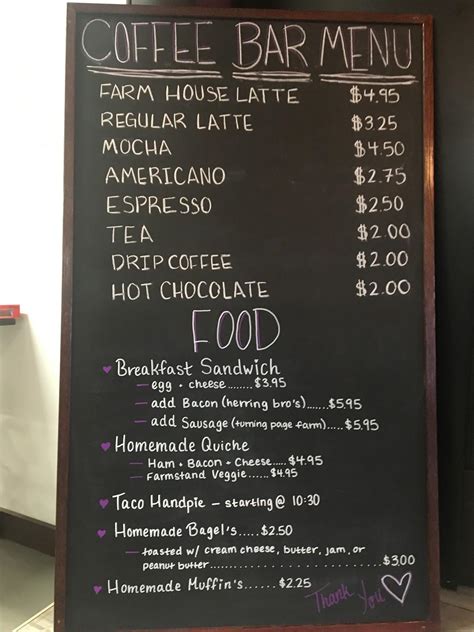 COFFEE BAR MENU
FARM HOUSE LATTE $4.95
REGULAR LATTE $3.25
MOCHA $4.50
AMERICANO $2.75
ESPRESSO $2.50
TEA $2.00
DRIP COFFEE $2.00
HOT CHOCOLATE $2.00
FOOD
♥ Breakfast Sandwich
— egg + cheese........$3.95
— add Bacon (herring bro's)......$5.95
— add Sausage (turning page farm).....$5.95
♥ Homemade Quiche
— Ham + Bacon + Cheese.....$4.95
— Farmstand Veggie......$4.95
♥ Taco Handpie – starting @ 10:30
♥ Homemade Bagel's.....$2.50
— toasted w/ cream cheese, butter, jam, or
peanut butter..............................$3.00
♥ Homemade Muffin's......$2.25
Thank You ♡